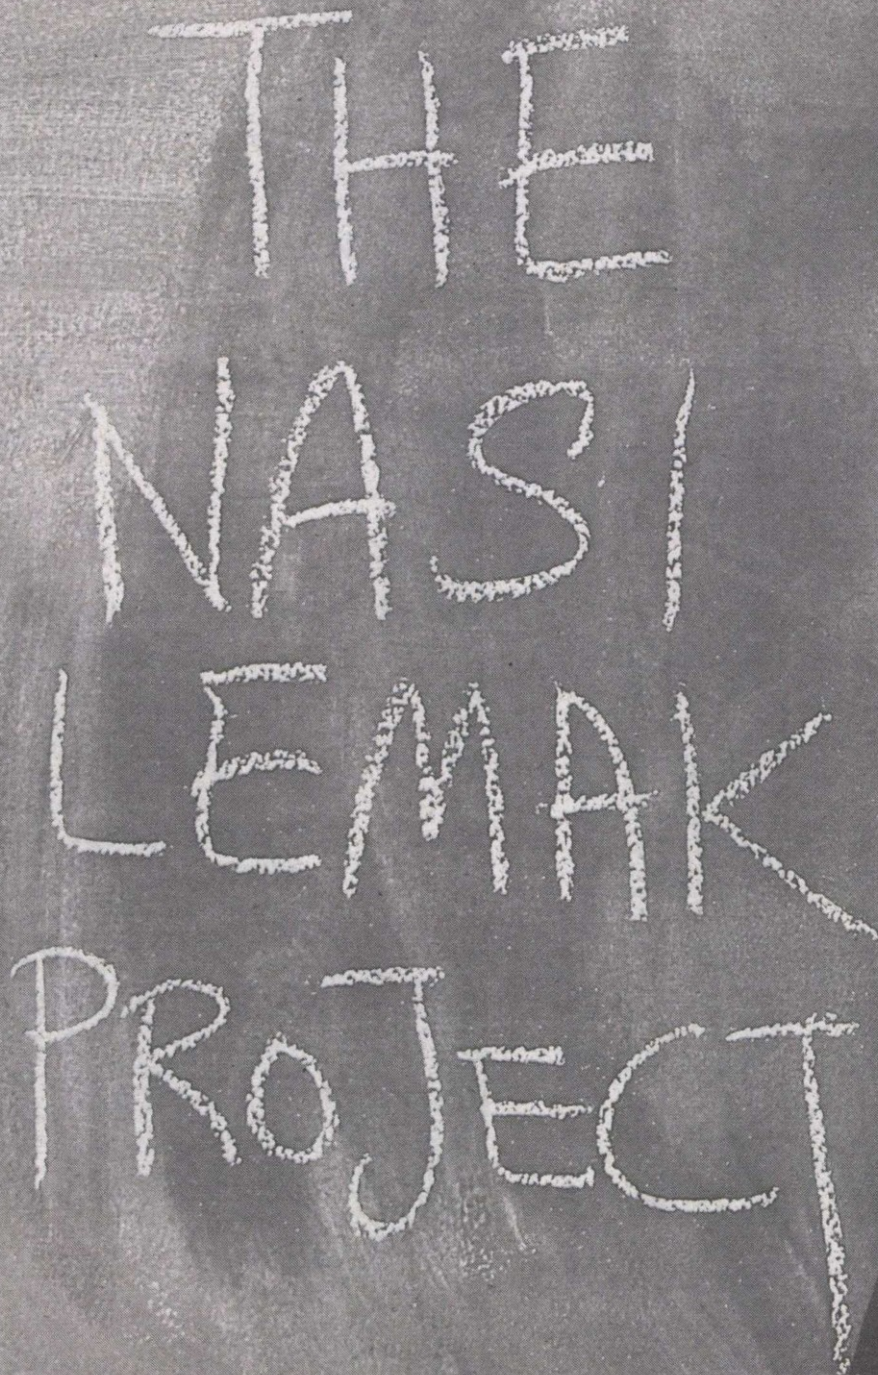 THE
NASI
LEMAK
PROJECT